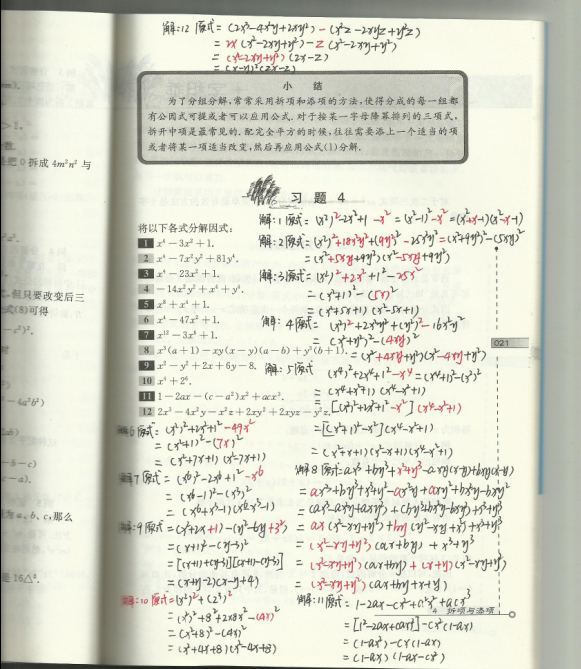 解:12 原式=(2x³-4x²y+2xy²)-(x²z-2xyz+y²z)
=2x(x²-2xy+y²)-z(x²-2xy+y²)
=(x²-2xy+y²)(2x-z)
=(x-y)²(2x-z)
小 结
为了分组分解,常常采用拆项和添项的方法,使得分成的每一组都
有公因式可提或者可以应用公式.对于按某一字母降幂排列的三项式,
拆开中项是最常见的.配完全平方的时候,往往需要添上一个适当的项
或者将某一项适当改变,然后再应用公式(1)分解.
把 0 拆成 4m²n² 与
习 题 4
将以下各式分解因式:
1 x⁴-3x²+1.
2 x⁴-7x²y²+81y⁴.
3 x⁴-23x²+1.
4 -14x²y²+x⁴+y⁴.
5 x⁸+x⁴+1.
6 x⁴-47x²+1.
7 x¹²-3x⁶+1.
8 x³(a+1)-xy(x-y)(a-b)+y³(b+1).
9 x²-y²+2x+6y-8.
10 x⁴+2⁶.
11 1-2ax-(c-a²)x²+acx³.
12 2x³-4x²y-x²z+2xy²+2xyz-y²z.
解:1 原式=(x²)²-2x²+1-x²=(x²-1)²-x²=(x²+x-1)(x²-x-1)
解:2原式=(x²)²+18x²y²+(9y²)²-25x²y²=(x²+9y²)²-(5xy)²
=(x²+5xy+9y²)(x²-5xy+9y²)
解:3原式=(x²)²+2x²+1²-25x²
=(x²+1)²-(5x)²
=(x²+5x+1)(x²-5x+1)
解: 4原式=(x²)²+2x²y²+(y²)²-16x²y²
=(x²+y²)²-(4xy)²
=(x²+4xy+y²)(x²-4xy+y²)
解:5原式=(x⁴)²+2x⁴+1²-x⁴=(x⁴+1)²-(x²)²
=(x⁴+x²+1)(x⁴-x²+1)
=[(x²)²+2x²+1²-x²](x⁴-x²+1)
=[(x²+1)²-x²](x⁴-x²+1)
=(x²+x+1)(x²-x+1)(x⁴-x²+1)
解6原式=(x²)²+2x²+1²-49x²
=(x²+1)²-(7x)²
=(x²+7x+1)(x²-7x+1)
解7原式=(x⁶)²-2x⁶+1²-x⁶
=(x⁶-1)²-(x³)²
=(x⁶+x³-1)(x⁶-x³-1)
解:9原式=(x²+2x+1)-(y²-6y+3²)
=(x+1)²-(y-3)²
=[(x+1)+(y-3)][(x+1)-(y-3)]
=(x+y-2)(x-y+4)
解:10原式=(x²)²+(2³)²
=(x²)²+8²+2x8x²-(4x)²
=(x²+8)²-(4x)²
=(x²+4x+8)(x²-4x+8)
解8原式=ax³+by³+x³+y³-axy(x-y)+bxy(x-y)
=ax³+by³+x³+y³-ax²y+axy²+bx²y-bxy²
=(ax³-ax²y+axy²)+(by³+bx²y-bxy²)+x³+y³
=ax(x²-xy+y²)+by(y²-xy+x²)+x³+y³
=(x²-xy+y²)(ax+by)+x³+y³
=(x²-xy+y²)(ax+by)+(x+y)(x²-xy+y²)
=(x²-xy+y²)(ax+by+x+y)
解:11原式=1-2ax-cx²+a²x²+acx³
=[1²-2ax+(ax)²]-cx²(1-ax)
=(1-ax)²-cx²(1-ax)
=(1-ax)(1-ax-cx²)
021
4 拆项与添项